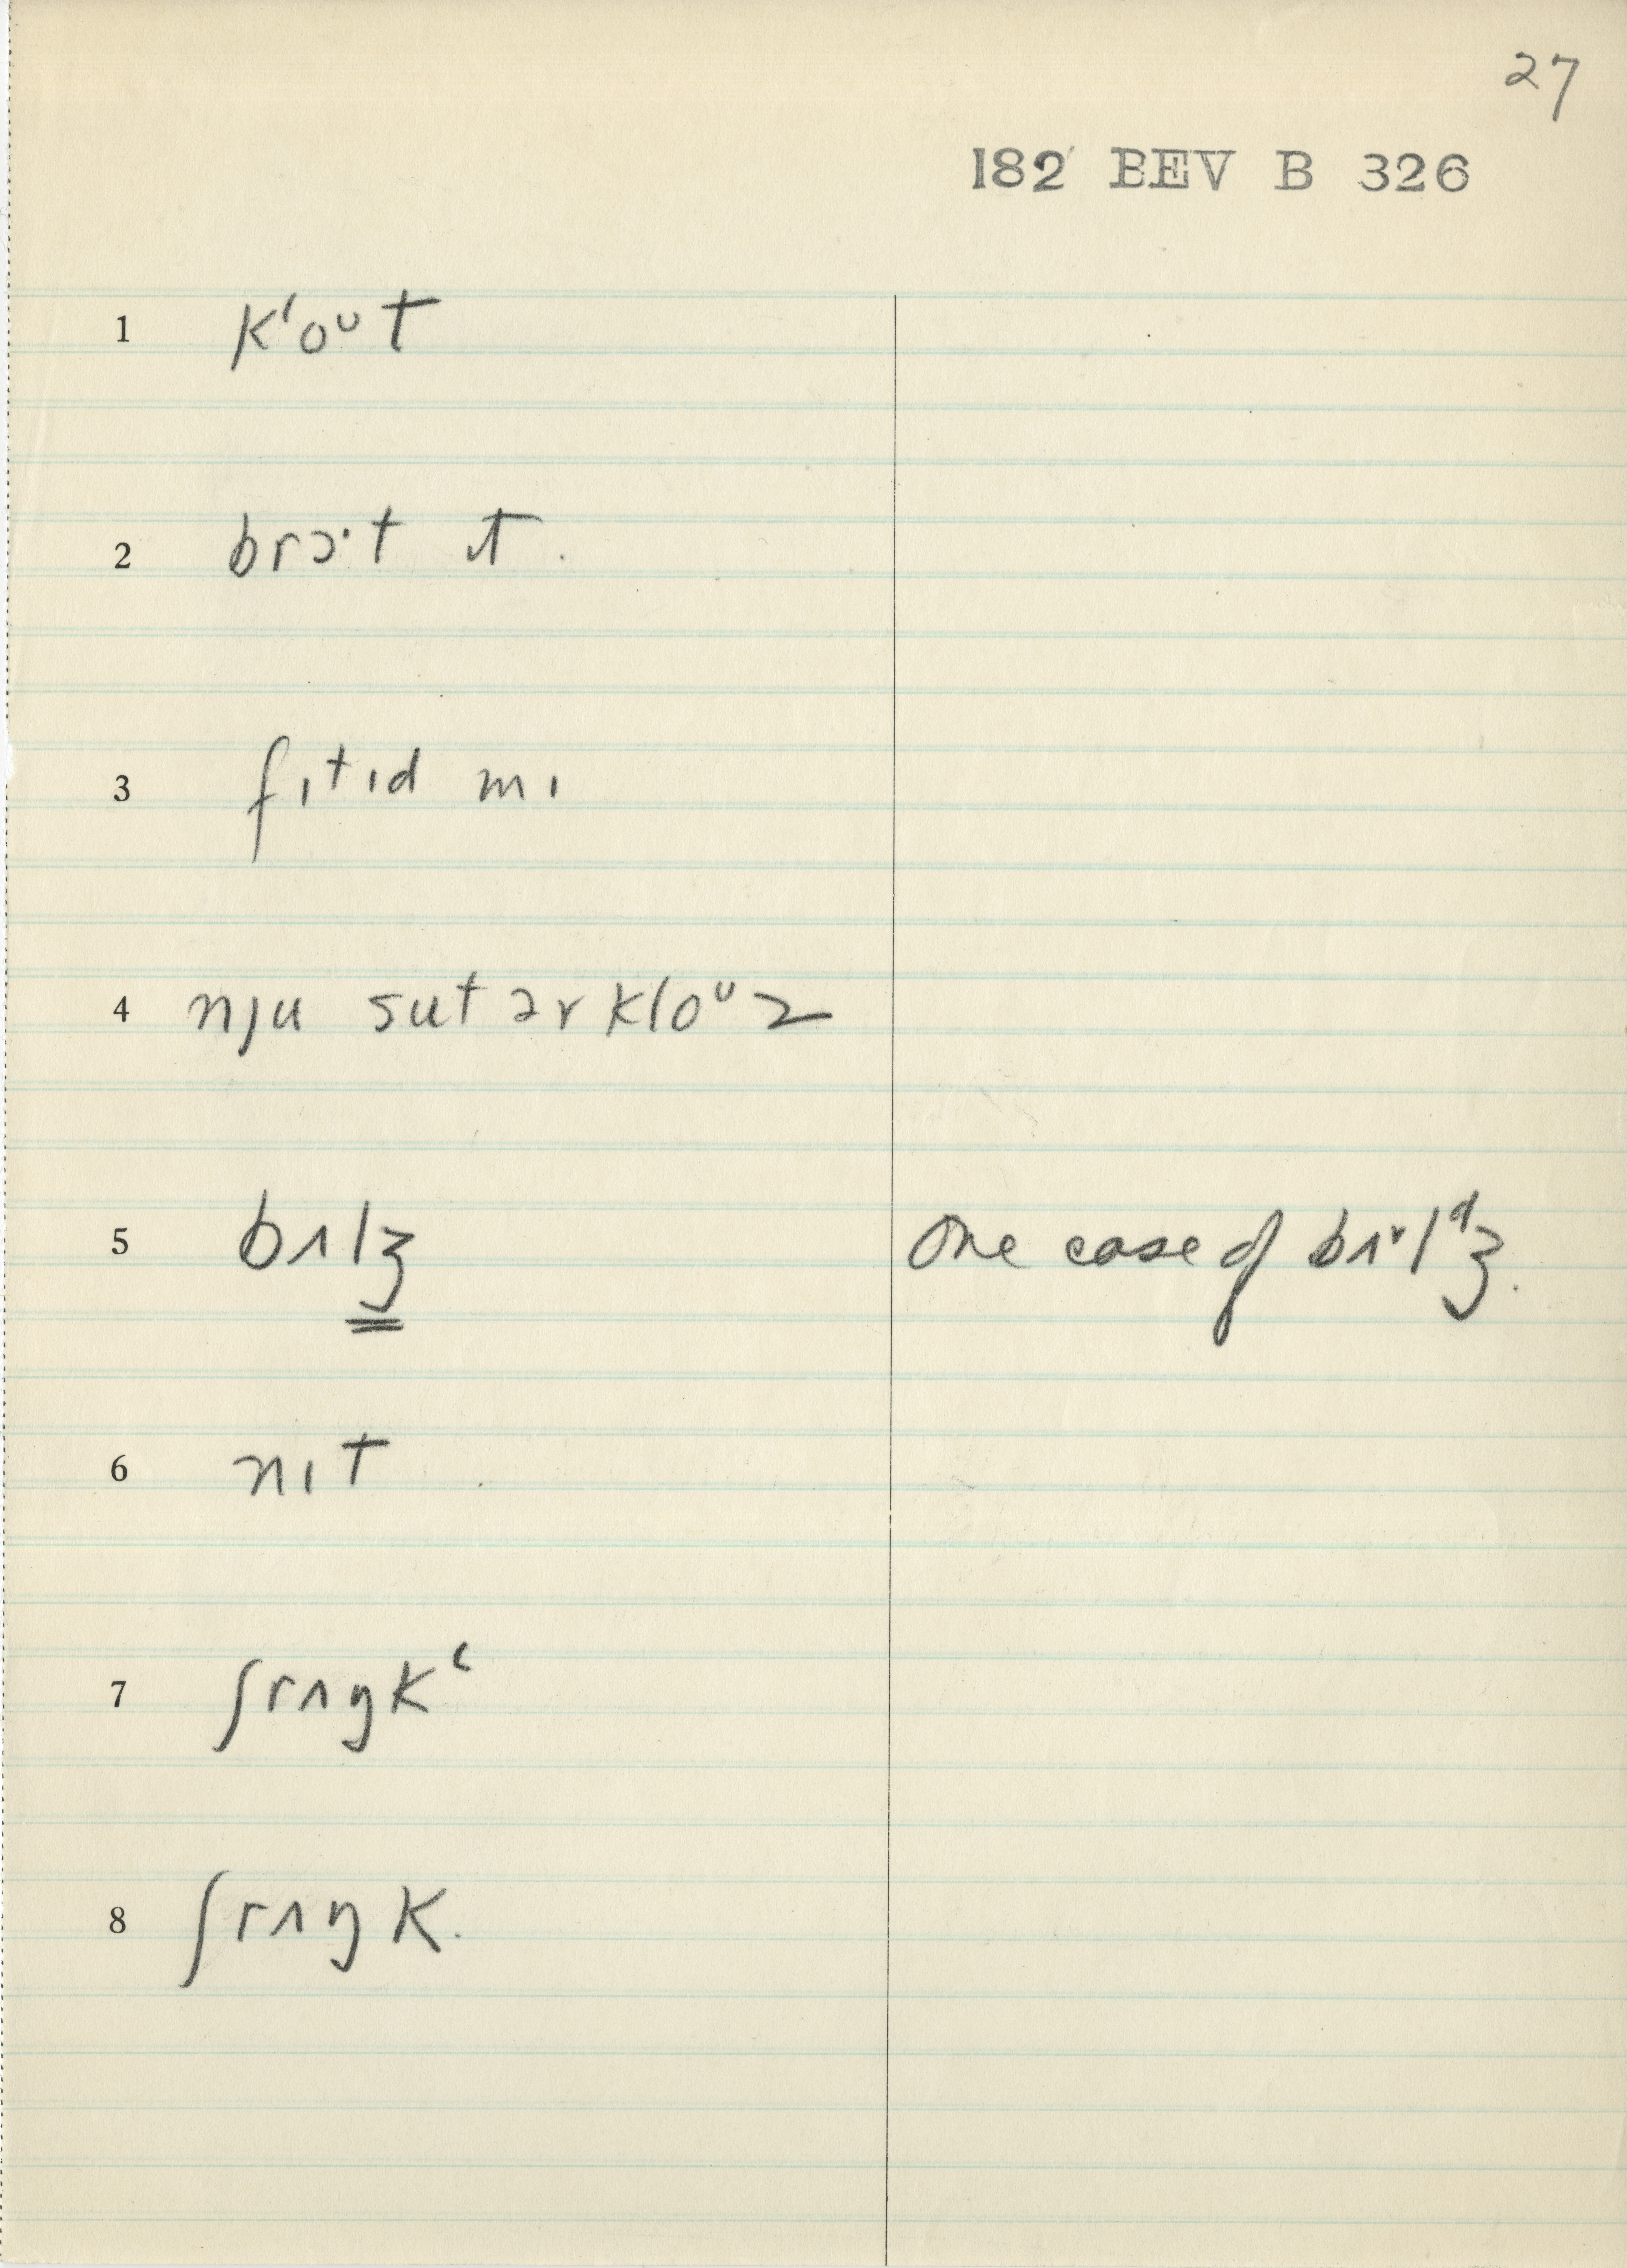 27
182 BEV B 326
1 kʻoᴜt
2 brɔ·t ɪt.
3 fɪtɪd mɪ
4 nju sut ər kloᴜz
5 bʌlʒ One case of bʌʳlᵈʒ.
6 nɪt
7 ʃrʌŋkʻ
8 ʃrʌŋk.